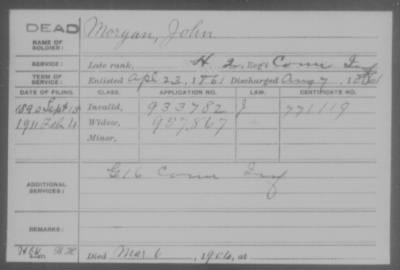 DEAD
NAME OF SOLDIER: Morgan, John
SERVICE: Late rank, H. 2, Reg't Conn Inf
TERM OF SERVICE: Enlisted Apl 23, 1861 Discharged Aug 7, 1861
DATE OF FILING. CLASS. APPLICATION NO. LAW. CERTIFICATE NO.
1890 Sept 15 Invalid, 933782 771119
1911 Feb Widow, 957,867
Minor,
ADDITIONAL SERVICES: G 16 Conn Inf
REMARKS:
Died Mar 6, 1906, at